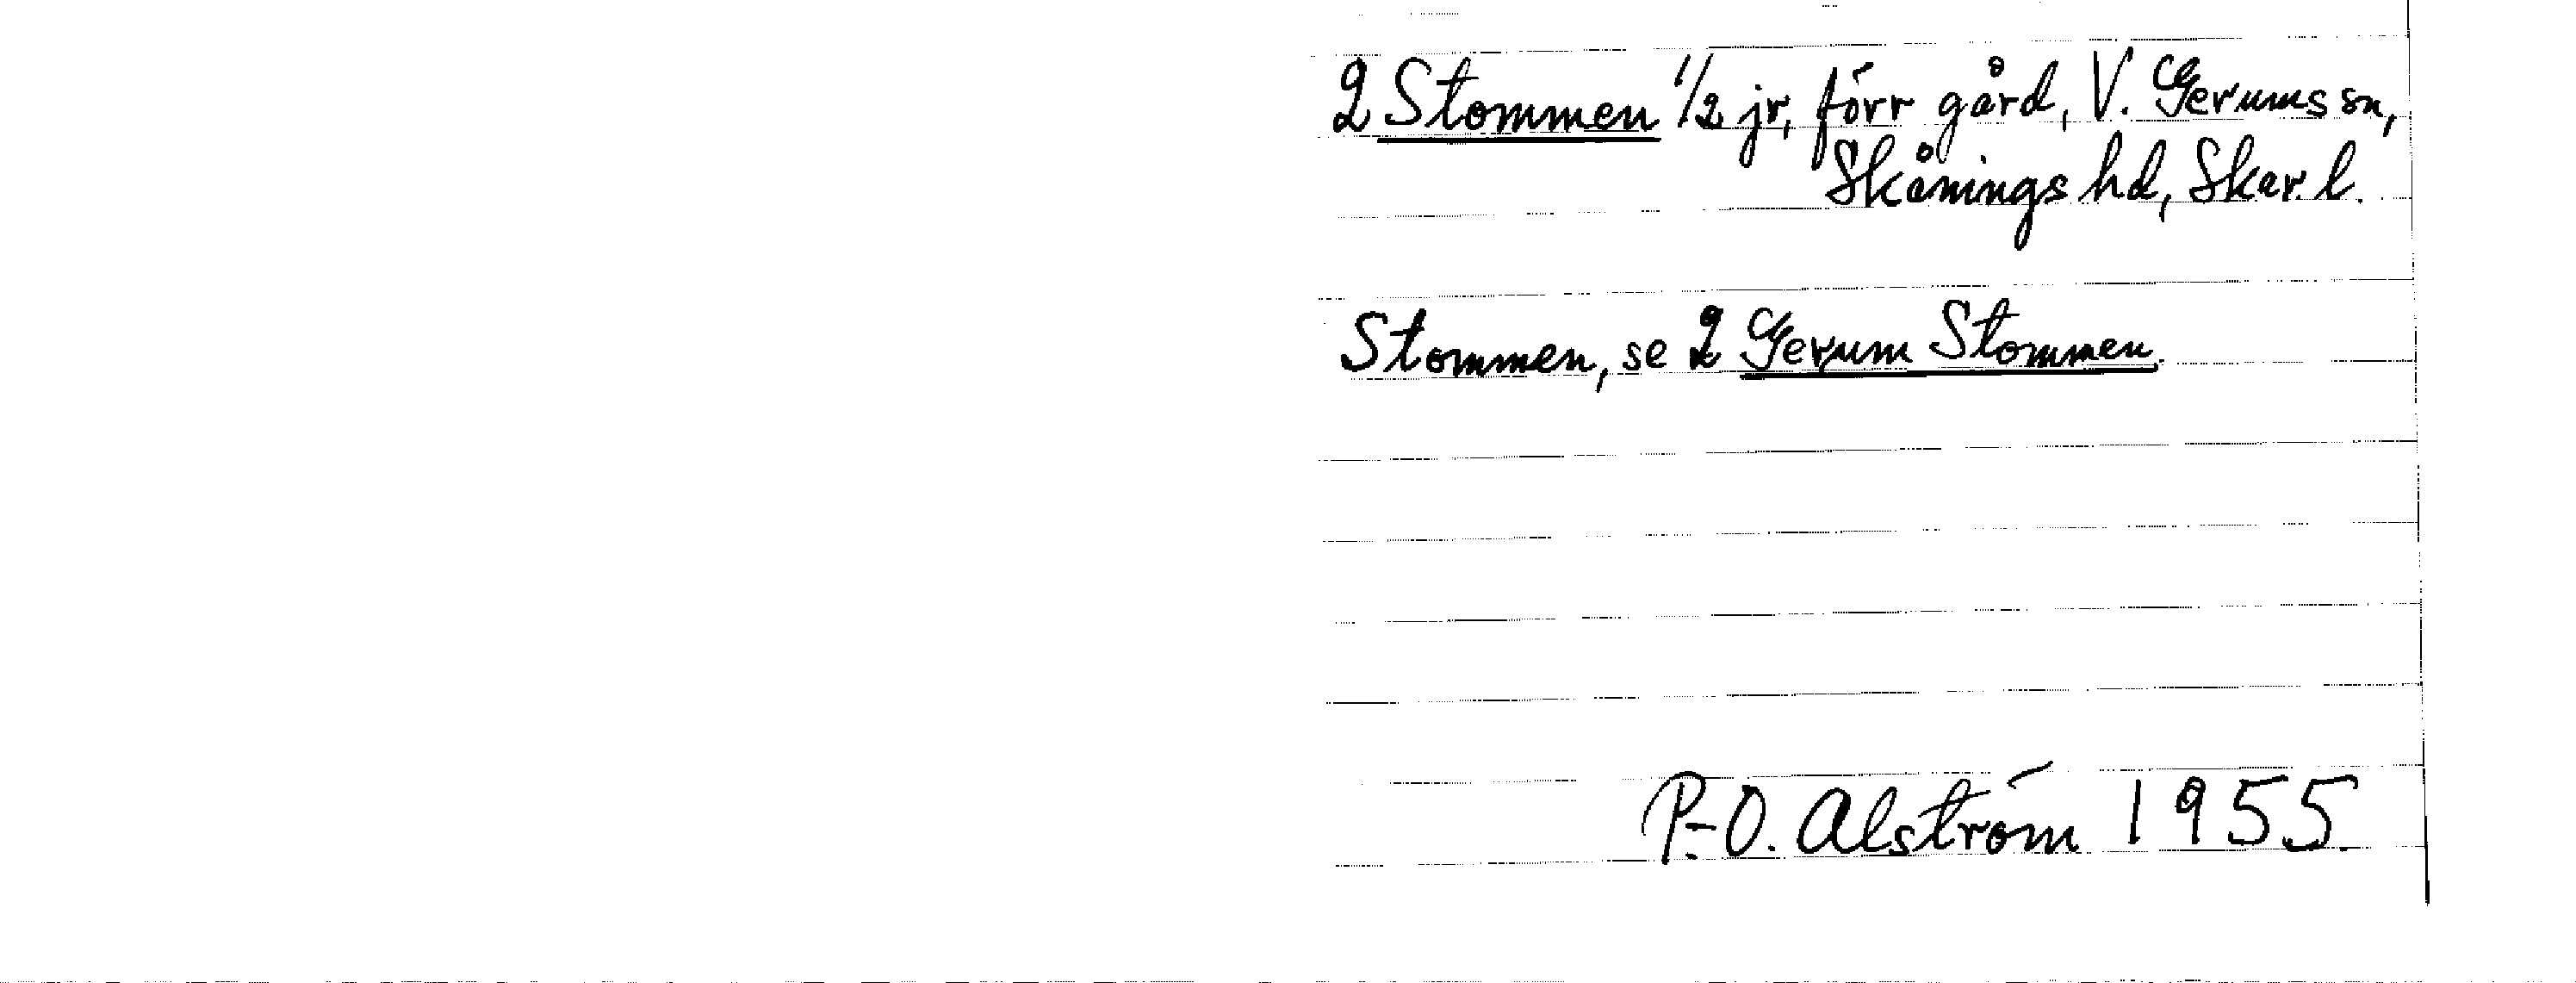 2 Stommen 1/2 jr, förr gård, V. Gerums sn,
Skånings hd, Skar. l.
Stommen, se 2 Gerum Stommen.
P.-O. Alström 1955.